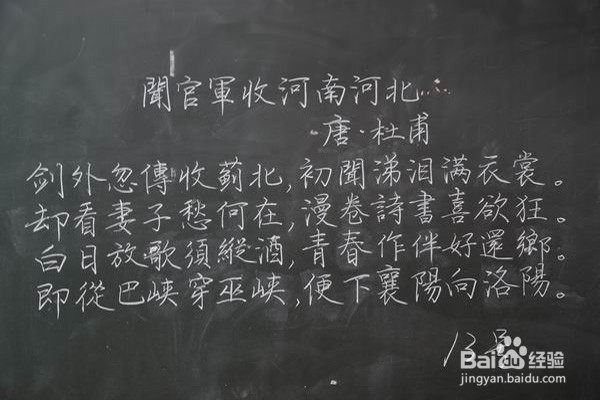 聞官軍收河南河北
唐·杜甫
剑外忽傳收薊北，初聞涕泪满衣裳。
却看妻子愁何在，漫卷詩書喜欲狂。
白日放歌須縱酒，青春作伴好還鄉。
即從巴峡穿巫峡，便下襄陽向洛陽。
13号
Baidu经验
jingyan.baidu.com